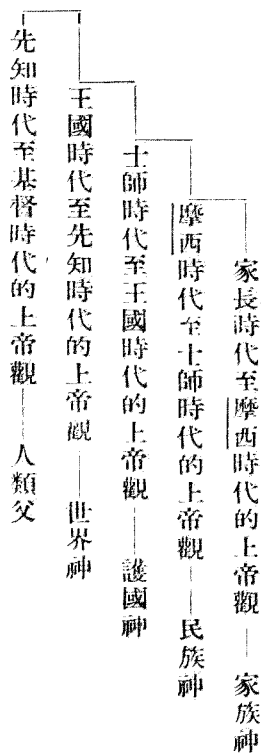 家長時代至摩西時代的上帝觀——家族神
摩西時代至士師時代的上帝觀——民族神
士師時代至王國時代的上帝觀——護國神
王國時代至先知時代的上帝觀——世界神
先知時代至基督時代的上帝觀——人類父